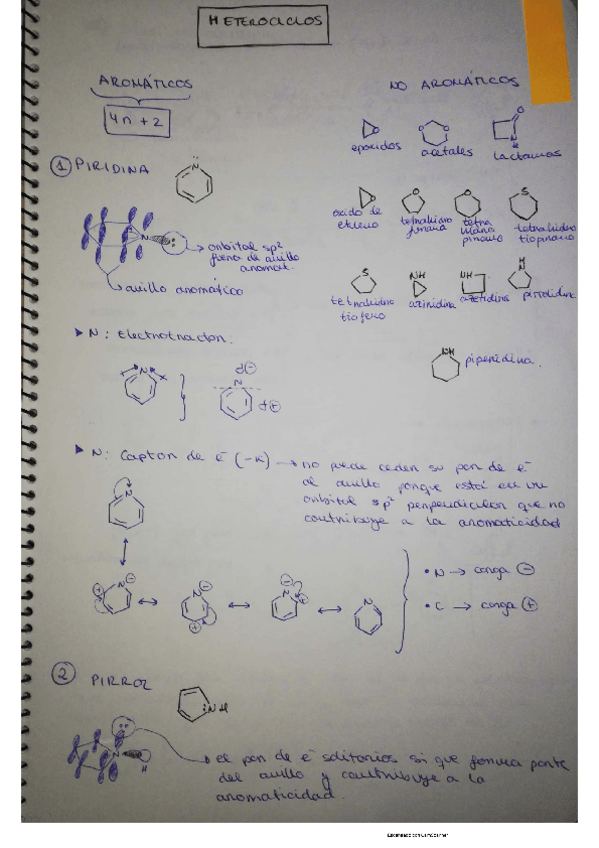 HETEROCICLOS
AROMÁTICOS
4n + 2
NO AROMÁTICOS
epóxidos
acetales
lactamas
óxido de
etileno
tetrahidro
furano
tetra
hidro
pirano
tetrahidro
tiopirano
tetrahidro
tiofeno
aziridina
azetidina
pirrolidina
piperidina.
① PIRIDINA
N
→ orbital sp²
fuera de anillo
aromat.
anillo aromático
➤ N: Electroatractor.
N
δ⊖
δ⊕
➤ N: Captor de ē (-K) → no puede ceder su par de ē
al anillo porque está en un
orbital sp² perpendicular que no
contribuye a la aromaticidad
• N → carga ⊖
• C → carga ⊕
② PIRROL
NH
N
H
el par de ē solitarios si que forma parte
del anillo y contribuye a la
aromaticidad.
Escaneado con CamScanner